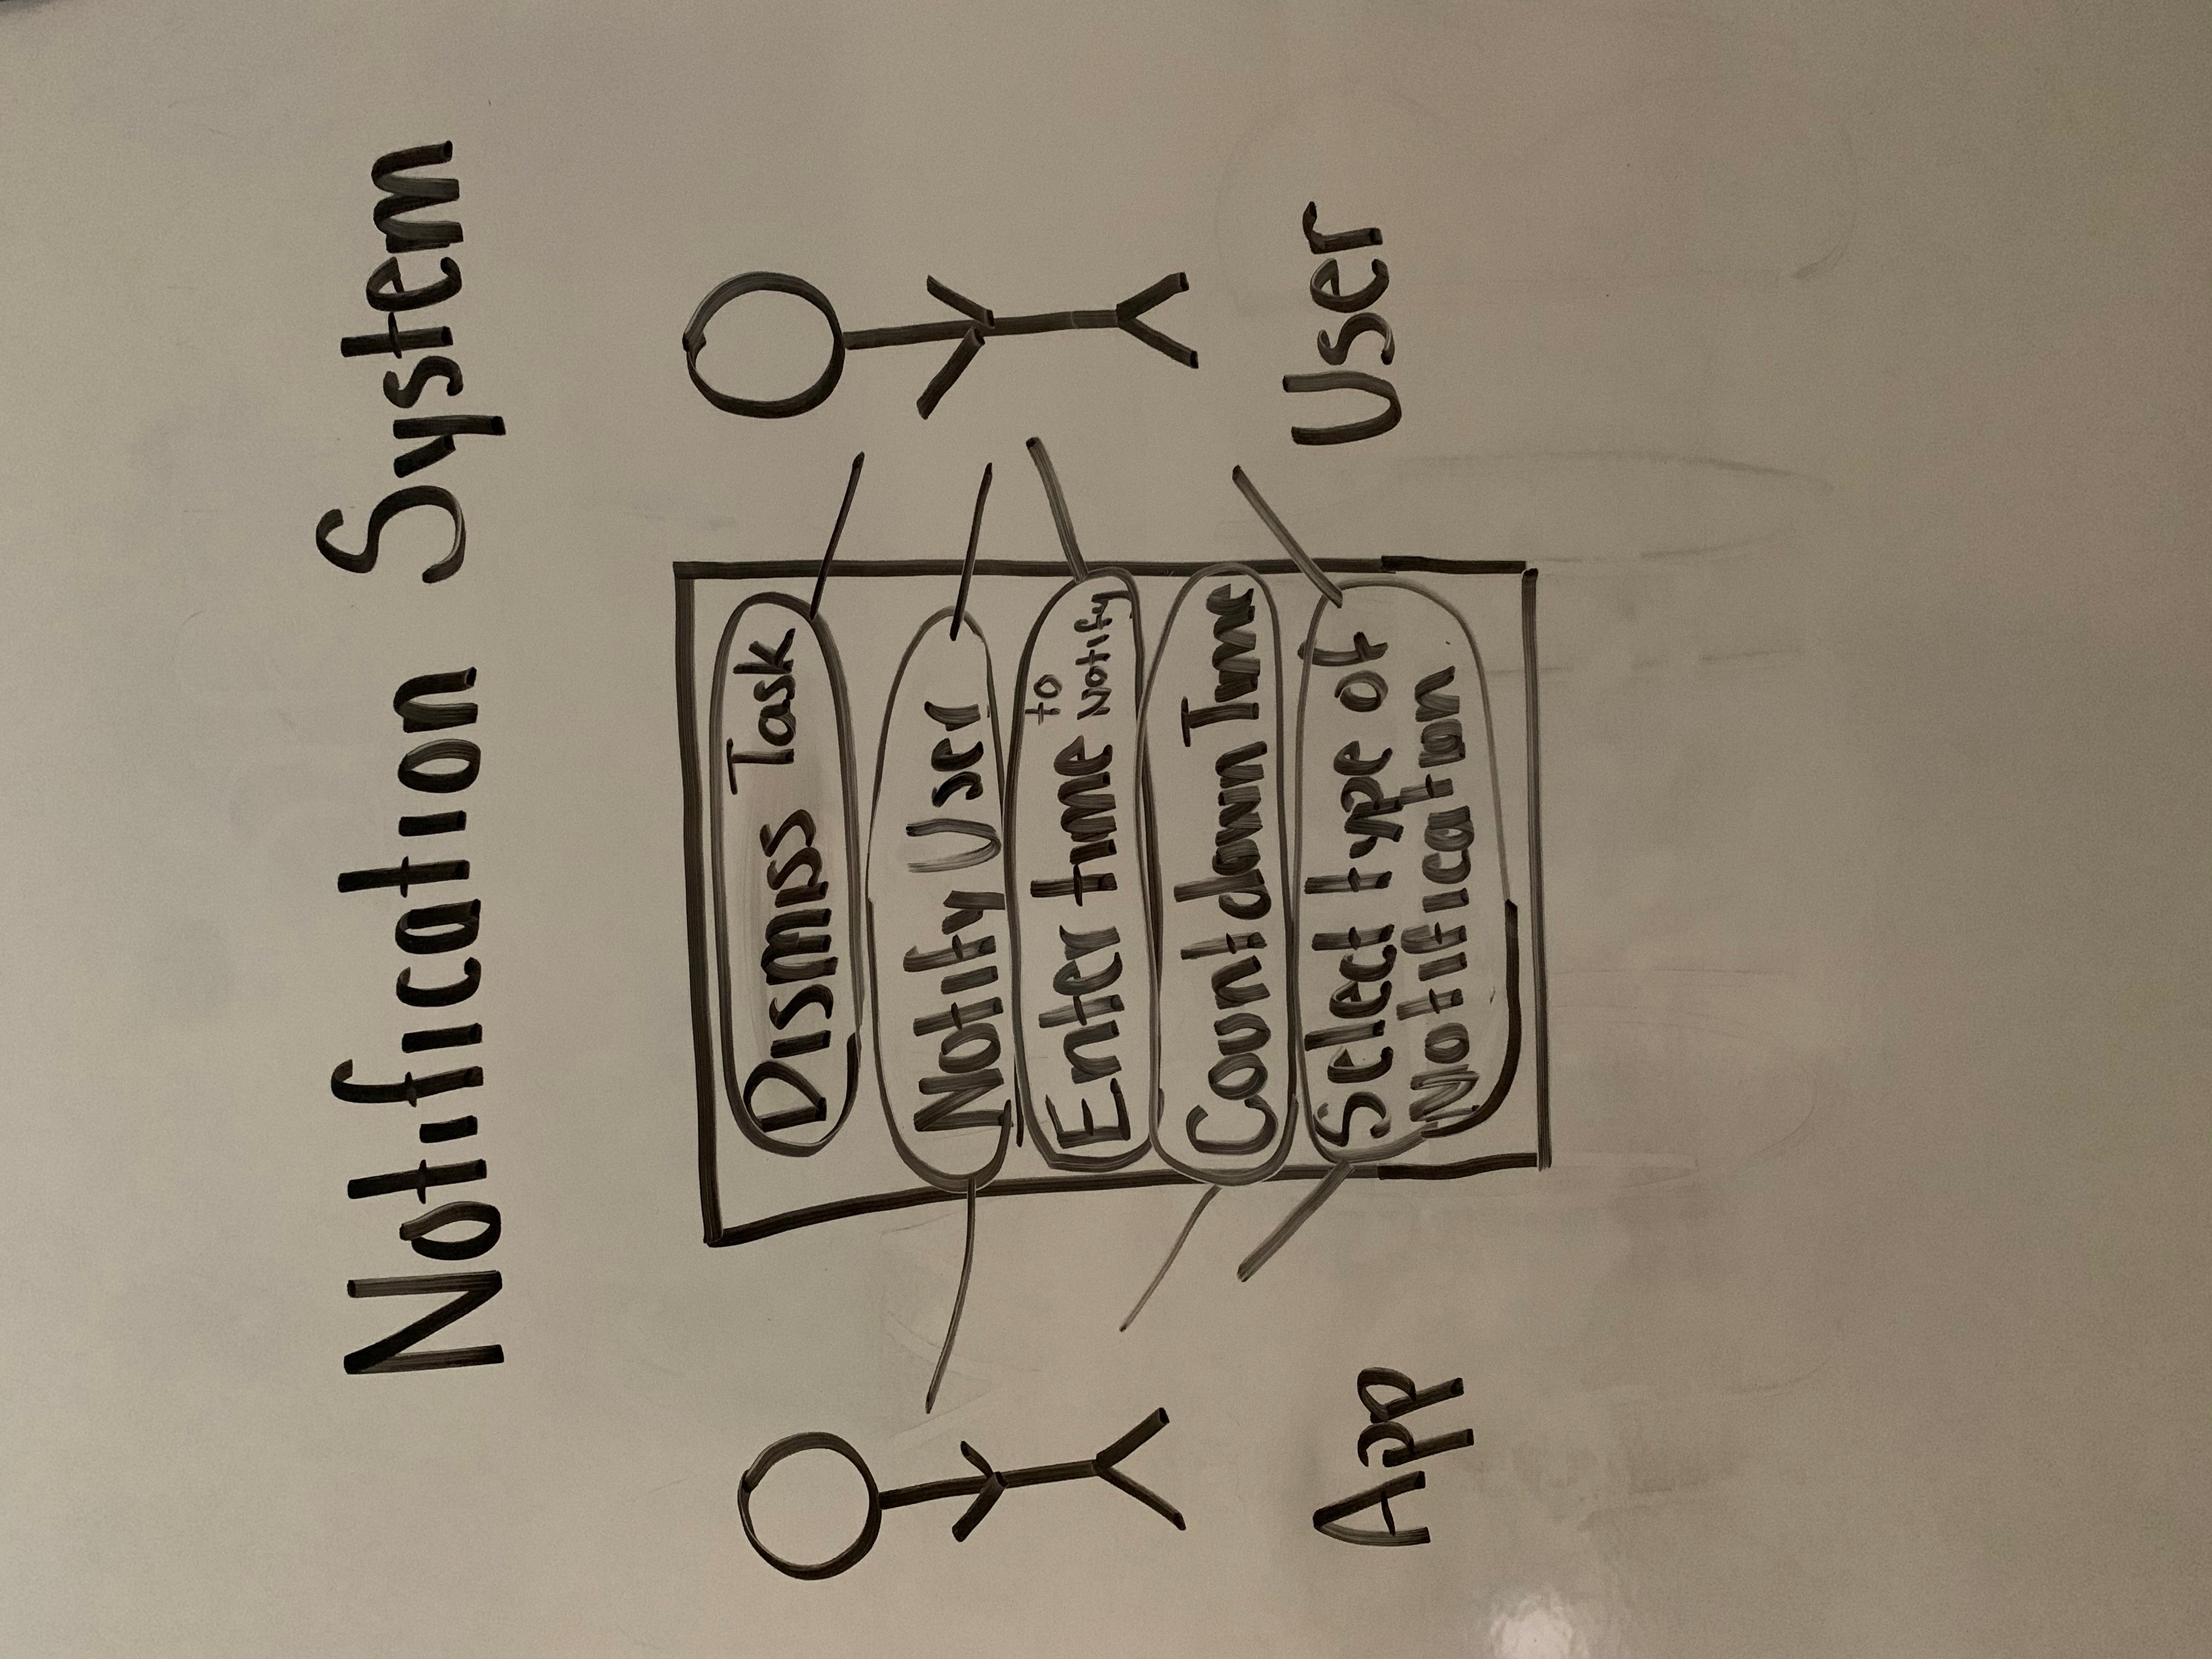 Notification System
Dismiss Task
Notify User
Enter time to Notify
Countdown Time
Select type of
Notification
App
User